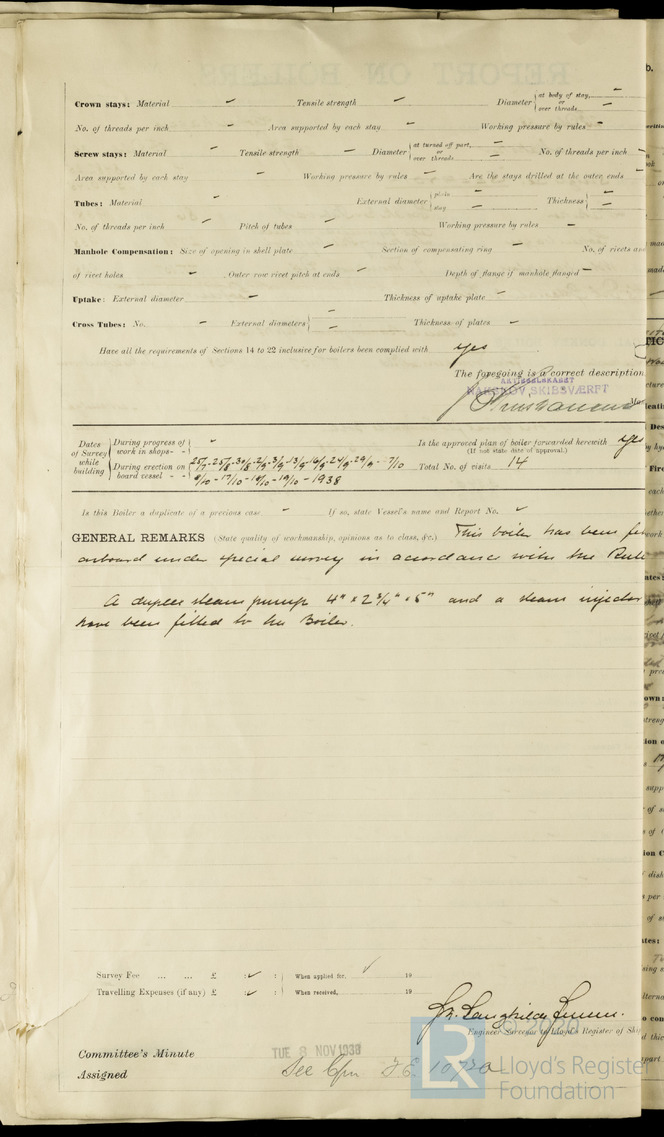 Crown stays: Material Tensile strength Diameter at body of stay, or over threads
No. of threads per inch Area supported by each stay Working pressure by rules
Screw stays: Material Tensile strength Diameter at turned off part, or over threads No. of threads per inch
Area supported by each stay Working pressure by rules Are the stays drilled at the outer ends
Tubes: Material External diameter plain stay Thickness
No. of threads per inch Pitch of tubes Working pressure by rules
Manhole Compensation: Size of opening in shell plate Section of compensating ring No. of rivets an
of rivet holes Outer row rivet pitch at ends Depth of flange if manhole flanged
Uptake: External diameter Thickness of uptake plate
Cross Tubes: No. External diameters Thickness of plates
Have all the requirements of Sections 14 to 22 inclusive for boilers been complied with yes
The foregoing is a correct description
AKTIESELSKABET
NAKSKOV SKIBSVÆRFT
Dates of Survey while building
During progress of work in shops - -
During erection on board vessel - - - 1938
Is the approved plan of boiler forwarded herewith yes
(If not state date of approval.)
Total No. of visits 14
Is this Boiler a duplicate of a previous case If so, state Vessel's name and Report No.
GENERAL REMARKS (State quality of workmanship, opinions as to class, &c.) This boiler has been
onboard under special survey in accordance with the Rul
A duplex steam pump 4" x 2 3/4" x 5" and a steam injector
have been fitted to the Boiler.
Survey Fee ... ... £ : : When applied for, 19
Travelling Expenses (if any) £ : : When received, 19
Engineer Surveyor to Lloyd's Register of Sh
© 2020
Committee's Minute TUE 8 NOV 1938
Assigned See
LR Lloyd's Register
Foundation